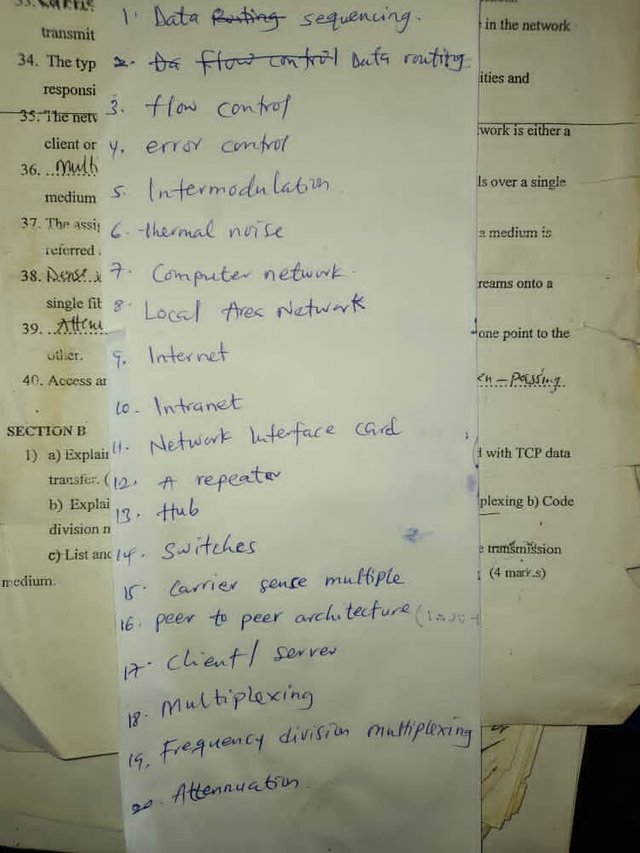 1. Data Routing sequencing.
transmit
in the network
34. The typ
2. Da Flow control Data routing
responsi
ities and
3. flow control
35. The netw
work is either a
client or
4. error control
36. ...Mult
ls over a single
medium
5. Intermodulation.
37. The assig
a medium is
referred
6. thermal noise
38. Dense
7. Computer network.
reams onto a
single fib
8. Local Area Network
39. ..Atten
one point to the
other.
9. Internet
40. Access ar
en-passing
10. Intranet
SECTION B
11. Network Interface card
1) a) Explain
with TCP data
transfer. (
12. A repeater
b) Explai
plexing b) Code
13. Hub
division n
c) List and
14. Switches
e transmission
medium.
(4 marks)
15. Carrier sense multiple
16. peer to peer architecture
17. Client/ server
18. Multiplexing
19. Frequency division multiplexing
20. Attennuation.